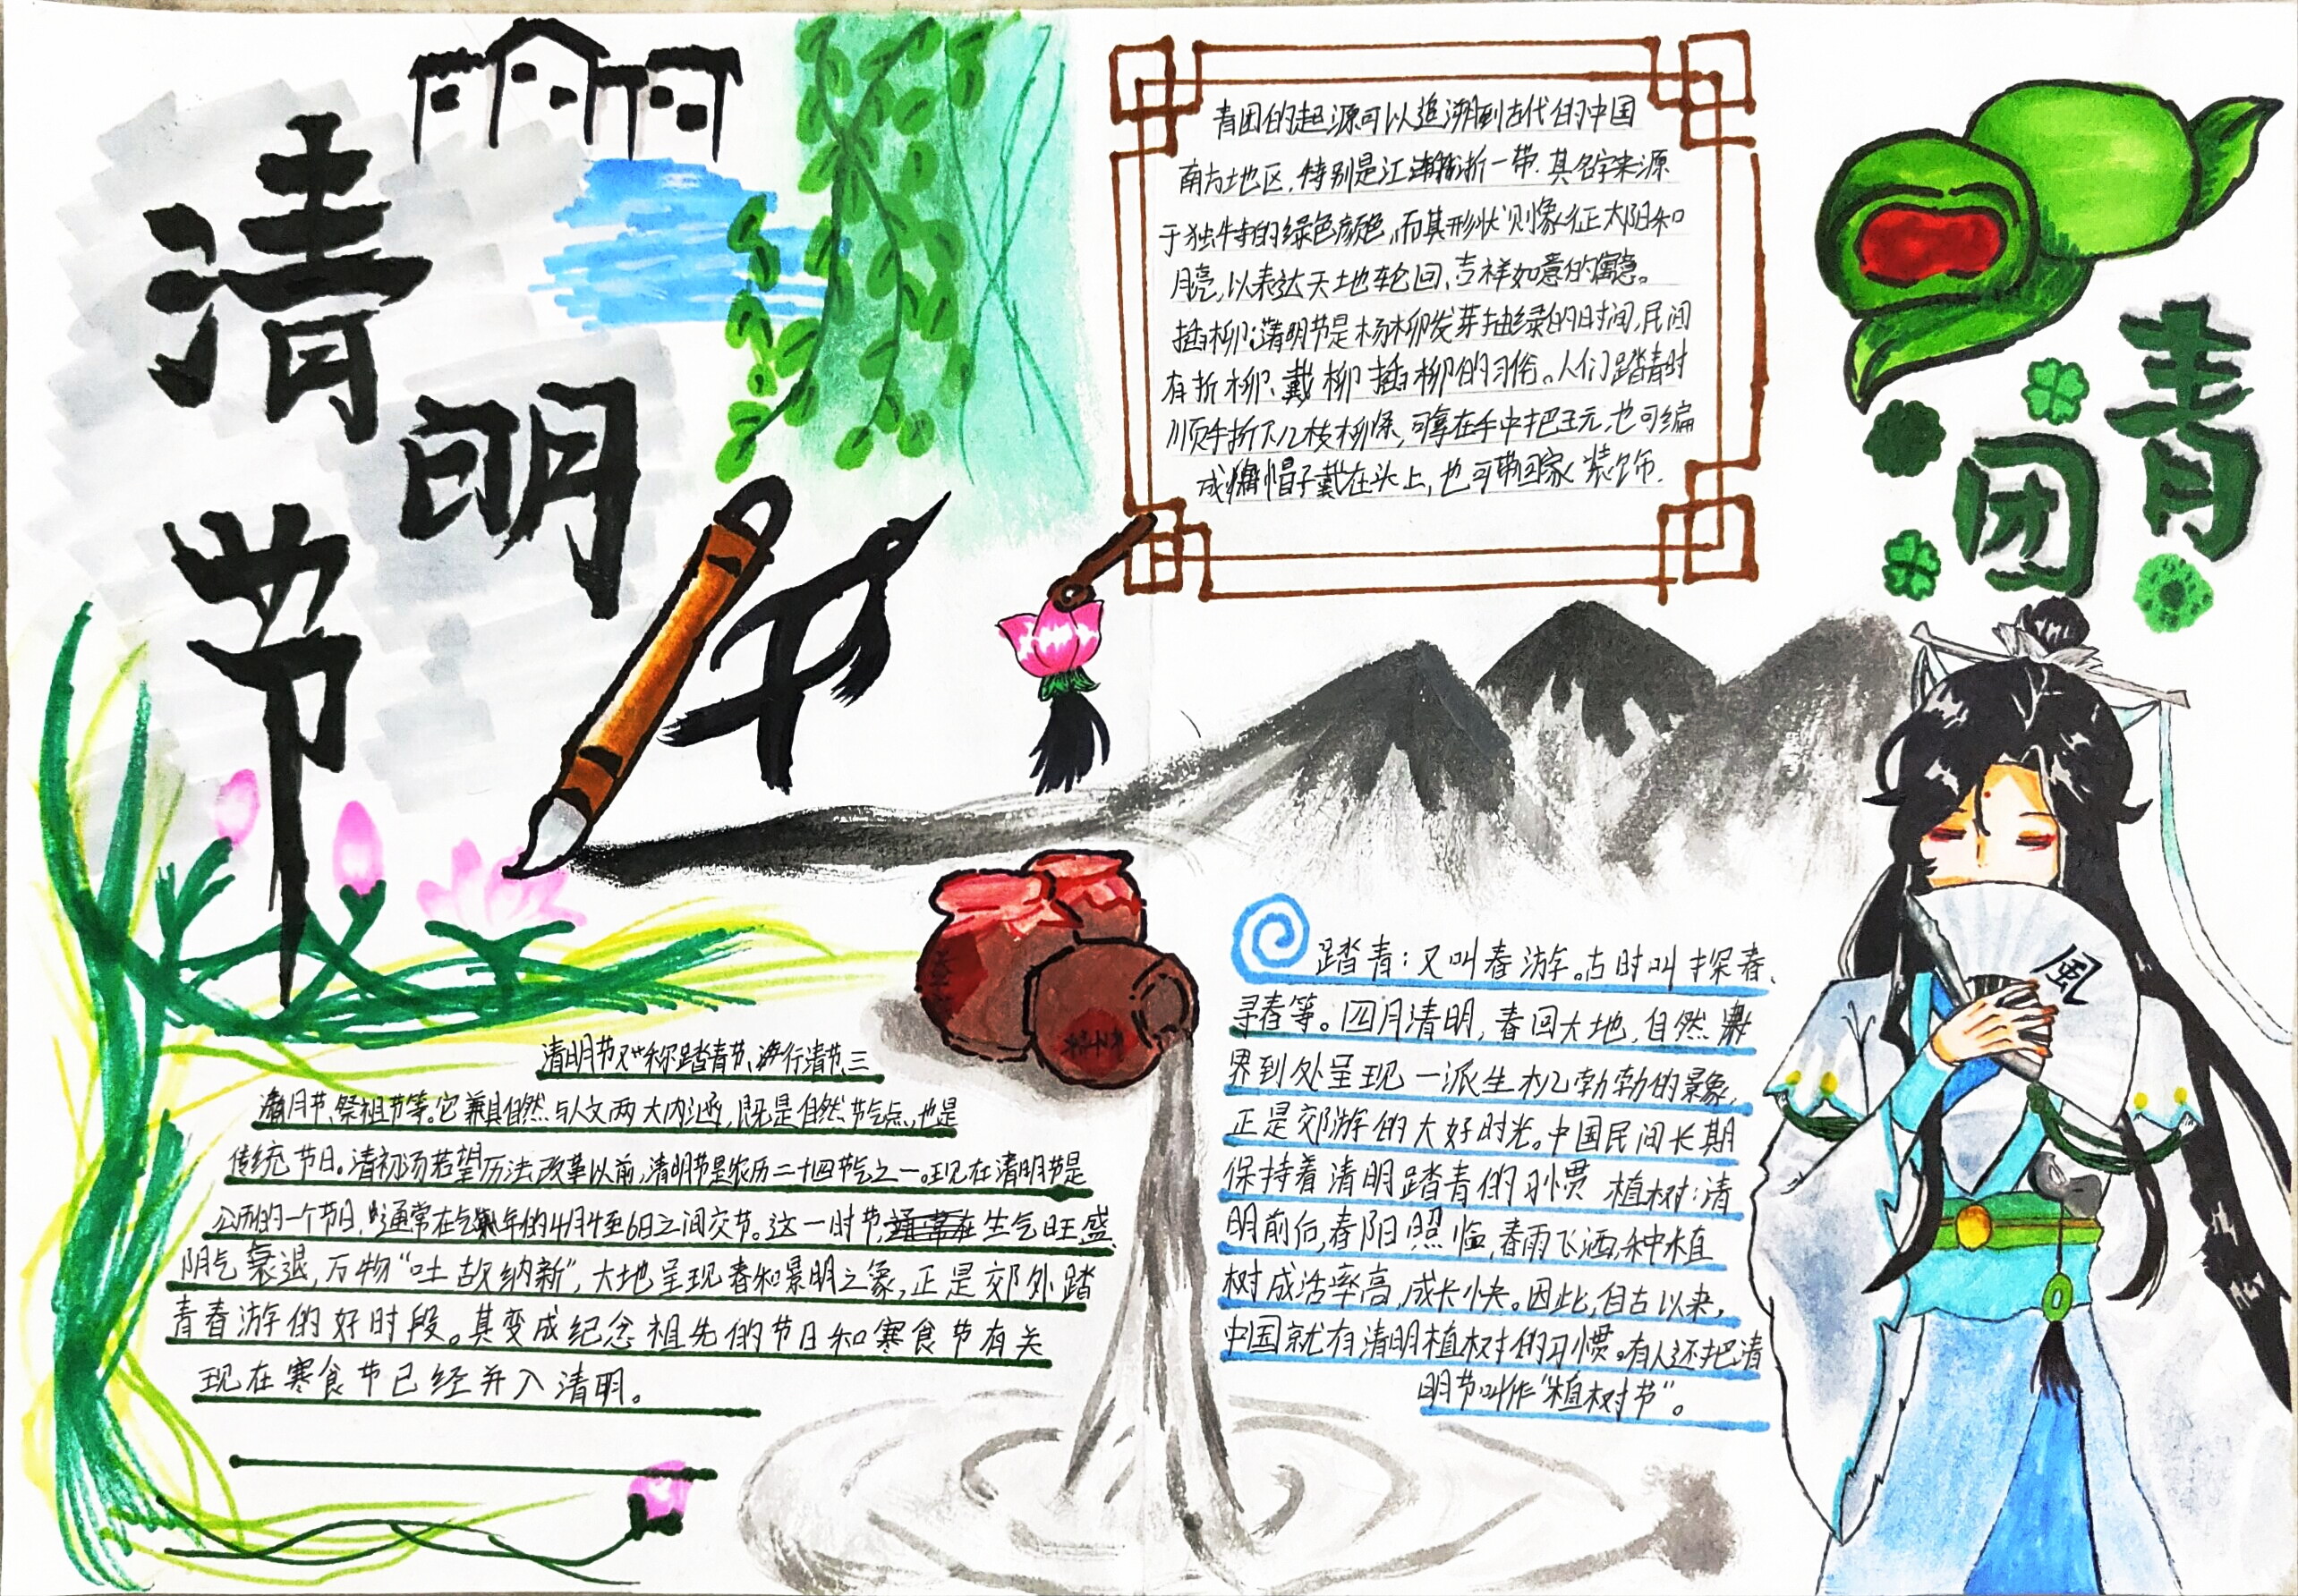 清明节
青团的起源可以追溯到古代的中国
南方地区,特别是江浙一带.其名字来源
于独特的绿色颜色,而其形状则像征太阳和
月亮,以表达天地轮回、吉祥如意的寓意。
插柳:清明节是杨柳发芽抽绿的时间,民间
有折柳、戴柳插柳的习俗。人们踏青时
顺手折下几枝柳条,可拿在手中把玩,也可编
成帽子戴在头上,也可带回家装饰.
青团
風
清明节又称踏青节、行清节、三
月节、祭祖节等。它兼具自然与人文两大内涵,既是自然节气点,也是
传统节日。清初汤若望历法改革以前,清明节是农历二十四节气之一。现在清明节是
公历的一个节日,通常在每年的4月4至6日之间交节。这一时节,生气旺盛
阴气衰退,万物“吐故纳新”,大地呈现春和景明之象,正是郊外踏
青春游的好时段。其变成纪念祖先的节日和寒食节有关
现在寒食节已经并入清明。
踏青:又叫春游。古时叫探春、
寻春等。四月清明,春回大地,自然
界到处呈现一派生机勃勃的景象,
正是郊游的大好时光。中国民间长期
保持着清明踏青的习惯 植树:清
明前后,春阳照临,春雨飞洒,种植
树成活率高,成长快。因此,自古以来,
中国就有清明植树的习惯。有人还把清
明节叫作“植树节”。